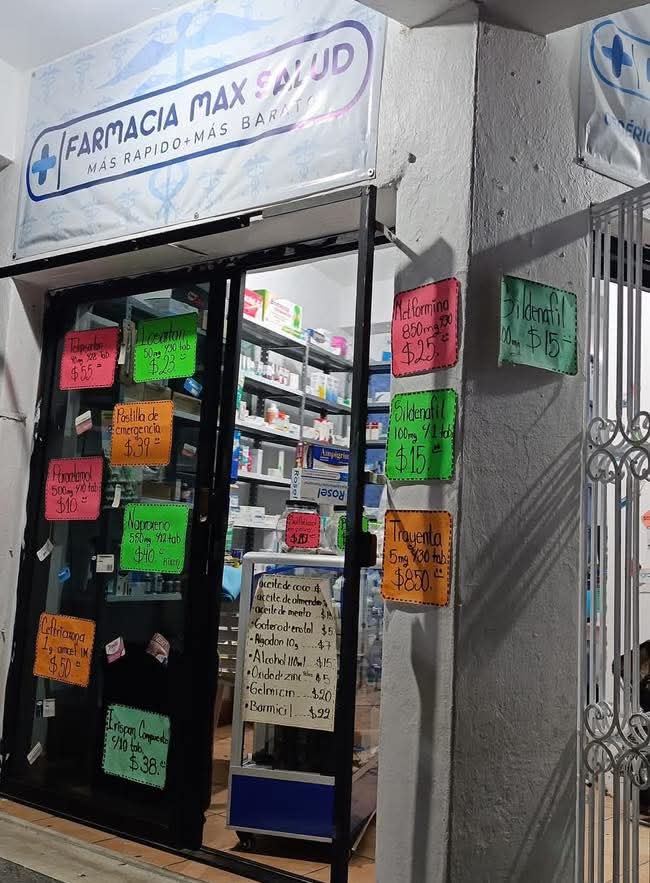 FARMACIA MAX SALUD
MÁS RAPIDO+MÁS BARATO
$55
Losartan
50mg c/30 tab
$23
Pastilla de
emergencia
$39
Paracetamol
500mg c/10 tab
$10
Naproxeno
550mg c/12 tab
$40
Ceftriaxona
1g amcel I.M
$50
Compuesto
c/10 tab
$38
Metformina
850mg c/30
$25
Sildenafil
100mg c/1 tab
$15
Trayenta
5mg c/30 tab
$850
Sildenafil
$15
Ampigrin
Rosel
Rosel
aceite de coco $
aceite de almendra
aceite de menta $15
Gotero d cristal $5
Algodon 10g $7
Alcohol 110ml $15
Oxido d zinc $5
Gelmicin $20
Barmicil $99